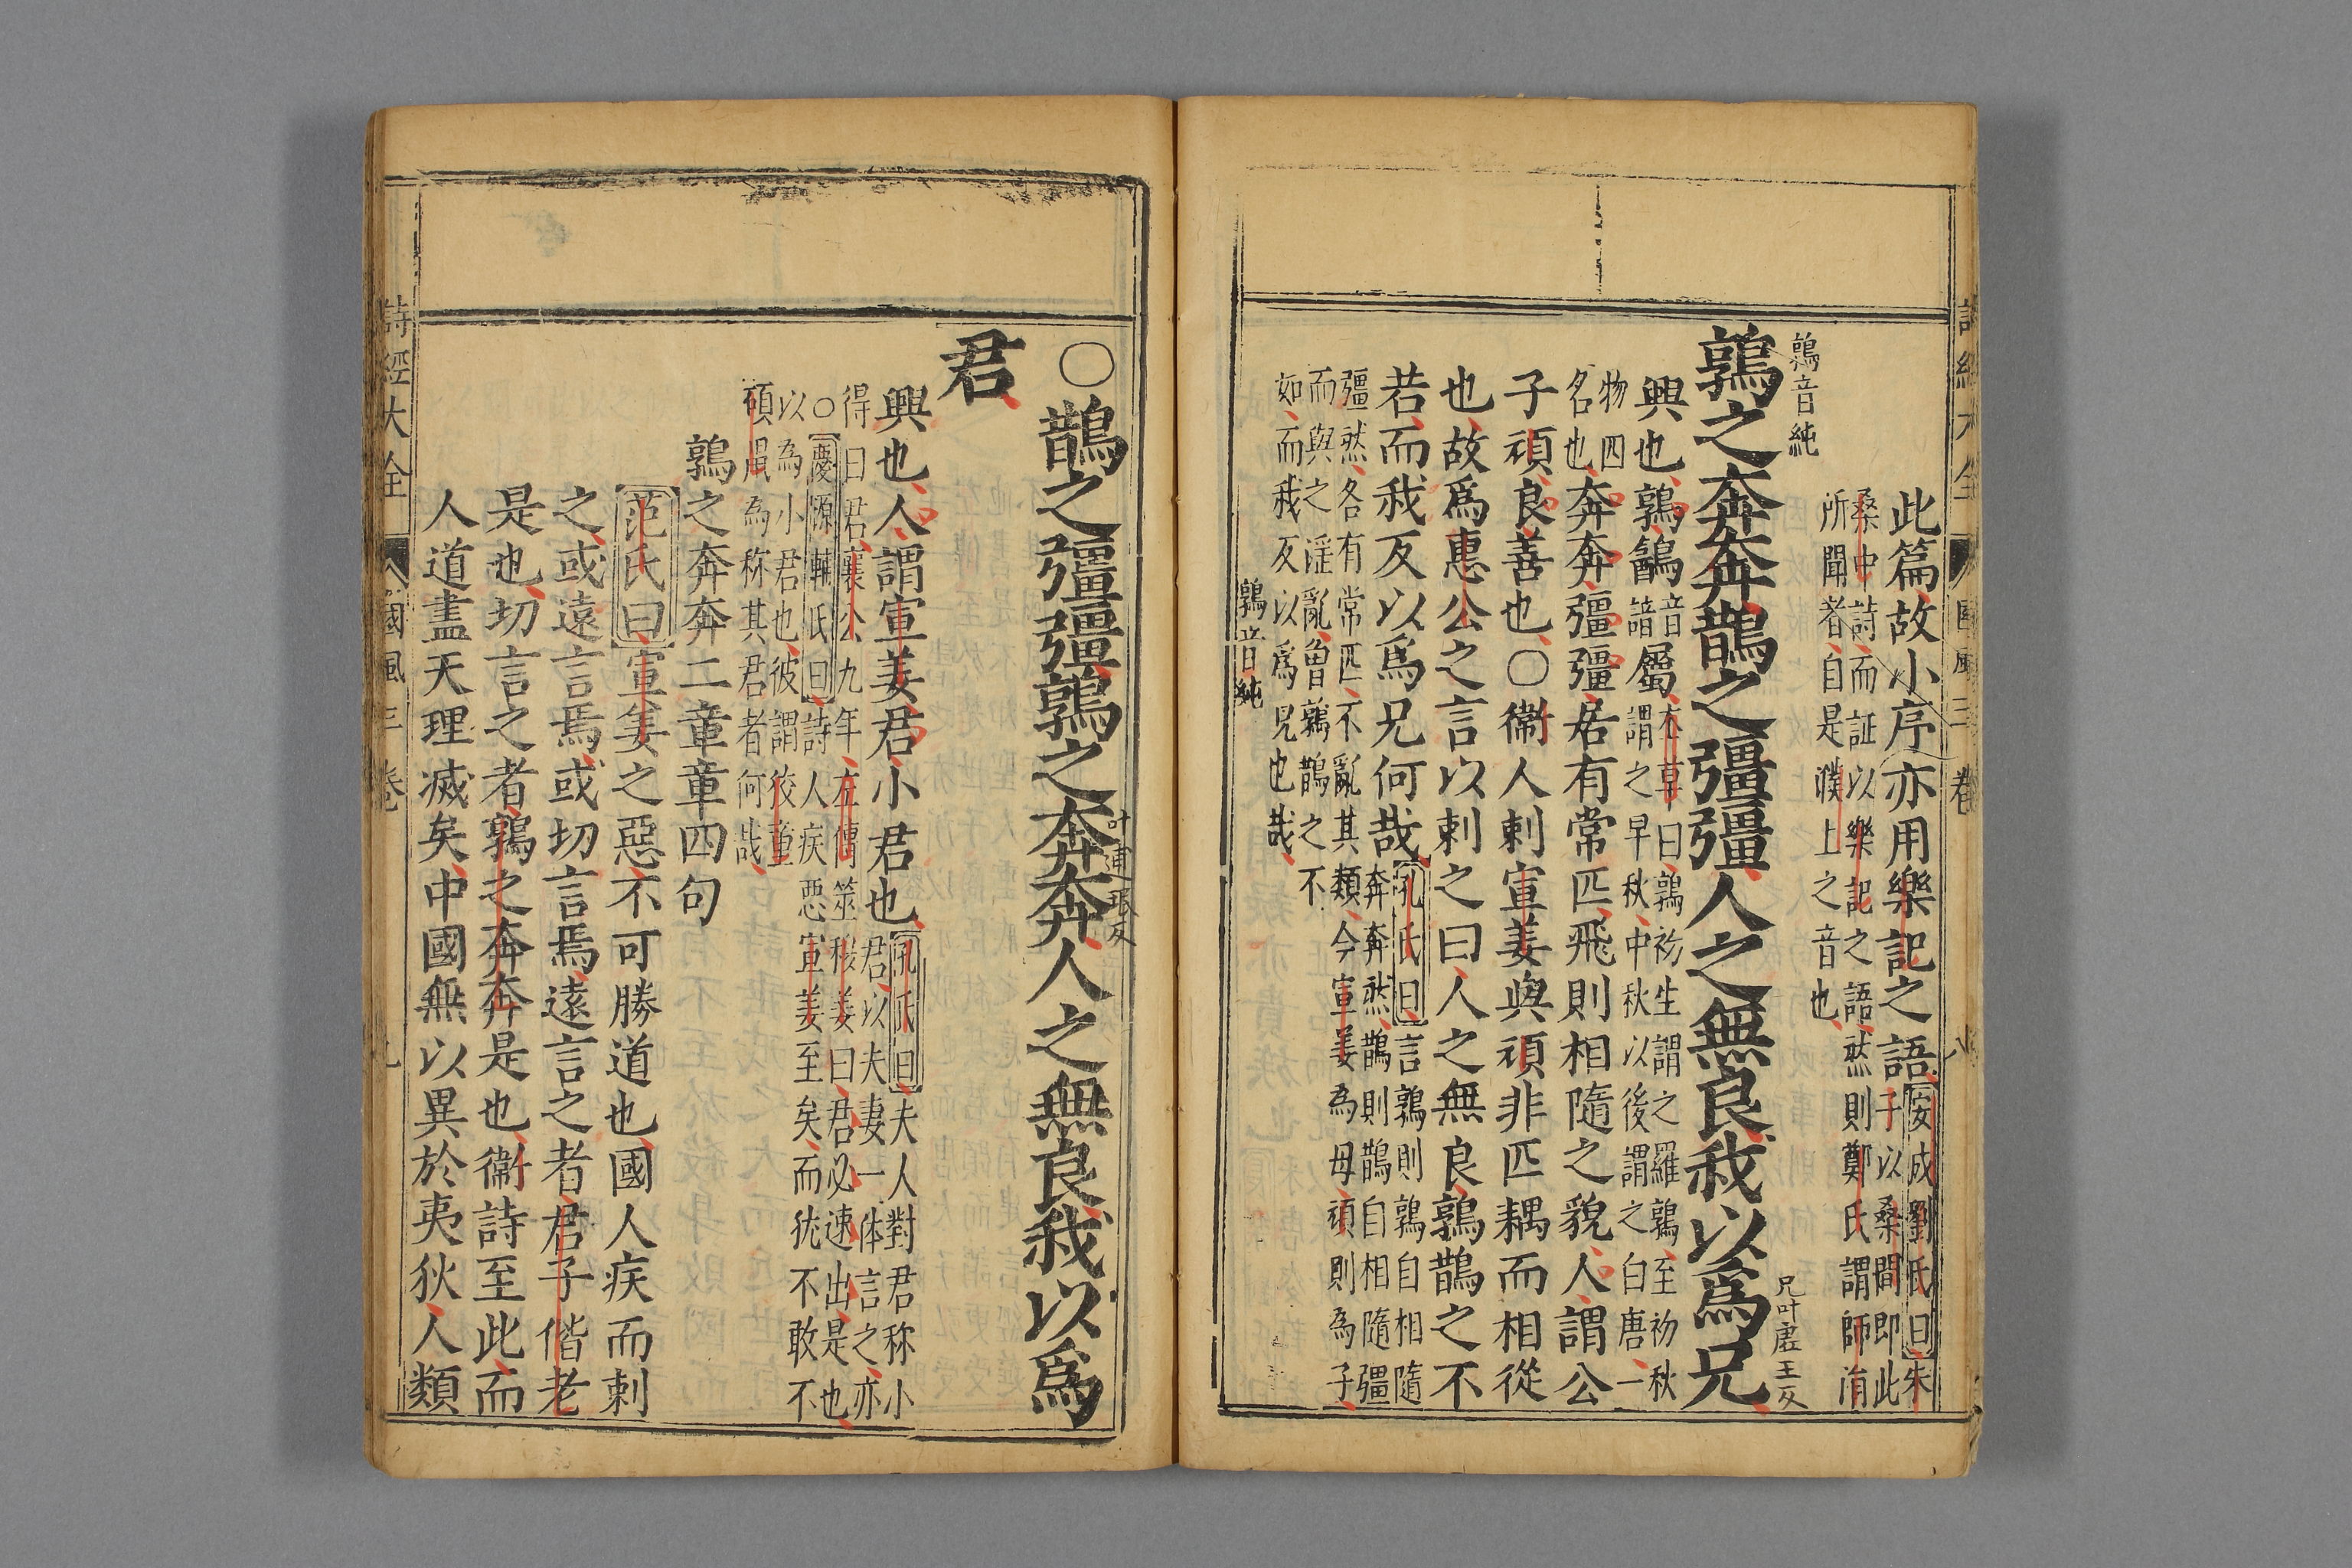 此篇故小序亦用樂記之語安成劉氏曰朱
子以桑間即此
桑中詩而証以樂記之語然則鄭氏謂師涓
所聞者自是濮上之音也
鶉音純
鶉之奔奔鵲之彊彊人之無良我以爲兄
兄叶虛王反
興也鶉䳺音諳屬
本草曰鶉初生謂之羅鶉至初秋
謂之早秋中秋以後謂之白唐一
物四
名也
奔奔彊彊居有常匹飛則相隨之貌人謂公
子頑良善也○衛人刺宣姜與頑非匹耦而相從
也故爲惠公之言以刺之曰人之無良鶉鵲之不
若而我反以爲兄何哉
孔氏曰言鶉則鶉自相隨
奔奔然鵲則鵲自相隨彊
彊然各有常匹不亂其類今宣姜為母頑則為子
而與之淫亂曾鶉鵲之不
如而我反以爲兄也哉
鶉音純
○鵲之彊彊鶉之奔奔人之無良我以爲
叶逋珉反
君
興也人謂宣姜君小君也
孔氏曰夫人對君称小
君以夫妻一体言之亦
得曰君襄公九年左傳筮穆姜曰君必速出是也
○慶源輔氏曰詩人疾惡宣姜至矣而犹不敢不
以為小君也彼謂狡童
碩鼠為称其君者何哉
鶉之奔奔二章章四句
范氏曰宣姜之惡不可勝道也國人疾而刺
之或遠言焉或切言焉遠言之者君子偕老
是也切言之者鶉之奔奔是也衛詩至此而
人道盡天理滅矣中國無以異於夷狄人類
詩經大全
國風三卷